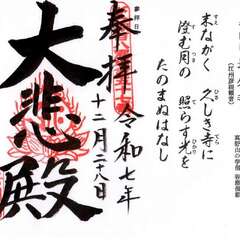 末ながく
久しき寺に
澄む月の
照らす光を
たのまぬはなし
参拝日
奉拝
令和七年
十二月二十八日
大悲殿